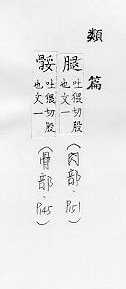 類篇
腿吐猥切股
也文一
(肉部．P151)
骽吐猥切股
也文一
(骨部．P145)